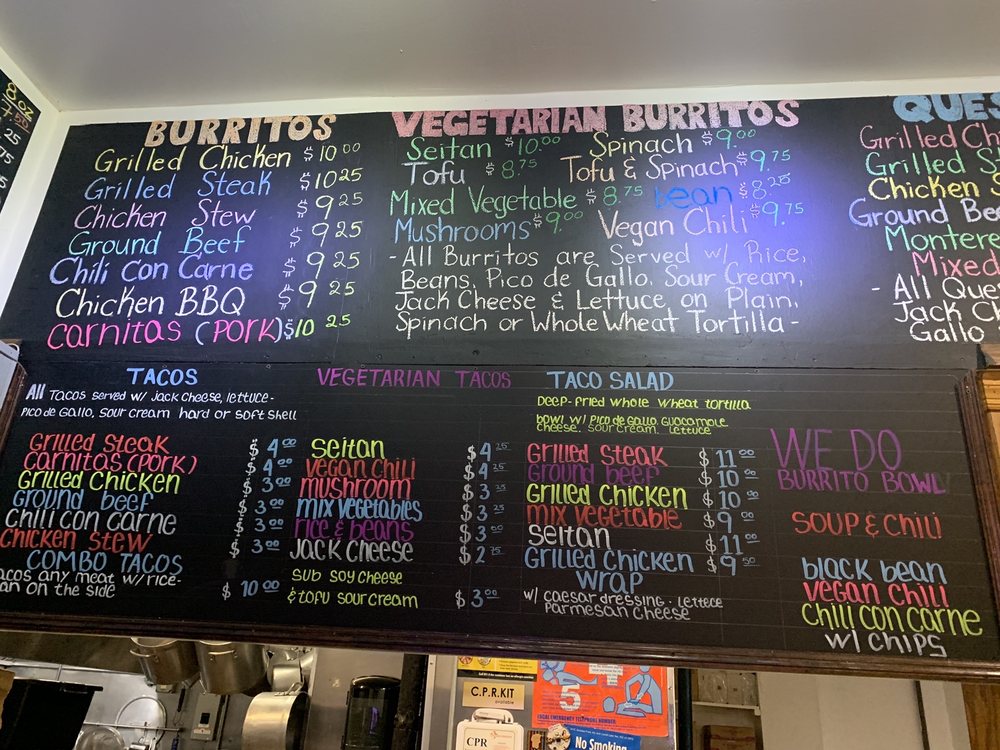 BURRITOS
Grilled Chicken $10 00
Grilled Steak $10 25
Chicken Stew $9 25
Ground Beef $9 25
Chili con Carne $9 25
Chicken BBQ $9 25
carnitas (Pork) $10 25
VEGETARIAN BURRITOS
Seitan $10.00 Spinach $9.00
Tofu $8.75 Tofu & Spinach $9.75
Mixed Vegetable $8.75 Lean $8.25
Mushrooms $9.00 Vegan Chili $9.75
- All Burritos are Served w/ Rice,
Beans, Pico de Gallo, Sour Cream,
Jack Cheese & Lettuce, on Plain,
Spinach or Whole Wheat Tortilla -
QUES
Grilled Ch
Grilled S
Chicken S
Ground Bee
Montere
Mixed
- All Que
Jack Ch
Gallo
TACOS
All Tacos served w/ jack cheese, lettuce-
Pico de Gallo, sour cream hard or soft shell
Grilled steak $4 00
carnitas (pork) $4 00
Grilled chicken $3 00
Ground beef $3 00
Chili con carne $3 00
Chicken stew $3 00
COMBO TACOS
acos any meat w/ rice-
an on the side $10 00
VEGETARIAN TACOS
Seitan $4 25
vegan chili $4 25
mushroom $3 25
mix vegetables $3 25
rice & beans $3 00
Jack cheese $2 75
sub soy cheese
& tofu sour cream $3 00
TACO SALAD
Deep-fried whole wheat tortilla
bowl w/ pico de gallo, guacamole
cheese, sour cream, lettuce
Grilled steak $11 00
Ground beef $10 00
Grilled chicken $10 00
mix vegetable $9 00
seitan $11 00
Grilled chicken $9 50
wrap
w/ caesar dressing. lettece
Parmesan cheese
WE DO
BURRITO BOWL
SOUP & Chili
black bean
vegan chili
Chili con carne
w/ chips
C.P.R. KIT
available
CPR
5
LOCAL EMERGENCY TELEPHONE NUMBER:
No Smoking